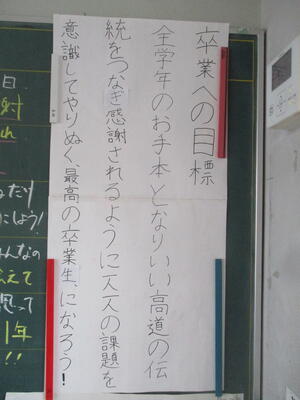 卒業への目標
全学年のお手本となりいい高道の伝
統をつなぎ感謝されるように一人一人の課題を
意識してやりぬく、最高の卒業生、になろう!
日
にしよう!
んなの
えて
思って
1年
!!